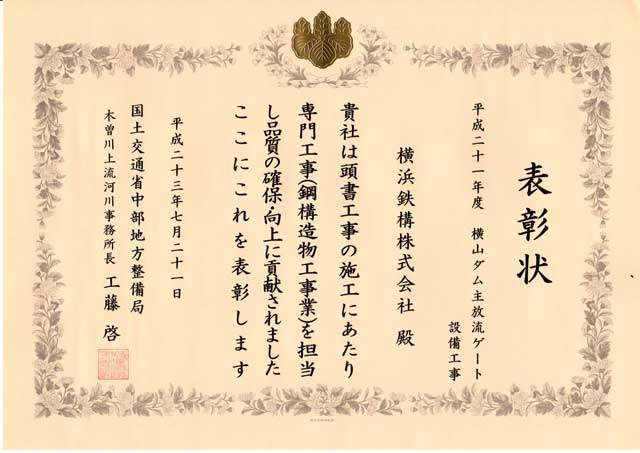 表彰状
平成二十一年度 横山ダム主放流ゲート
設備工事
横浜鉄構株式会社 殿
貴社は頭書工事の施工にあたり
専門工事(鋼構造物工事業)を担当
し品質の確保・向上に貢献されました
ここにこれを表彰します
平成二十三年七月二十一日
国土交通省中部地方整備局
木曽川上流河川事務所長 工藤 啓